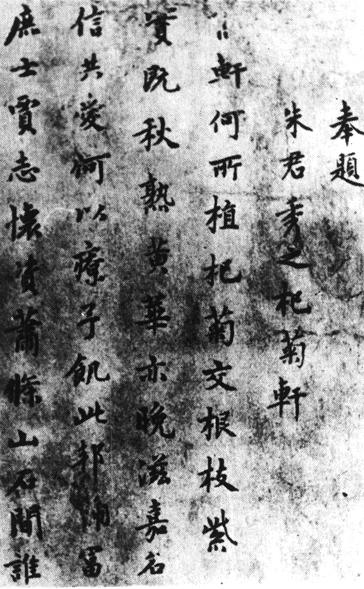 奉題
朱君秀之杞菊軒
軒何所植杞菊交根枝紫
實既秋熟黄華亦晩滋嘉名
信共愛何以療子飢此邦富
庶士賈志懷資蕭條山石間誰